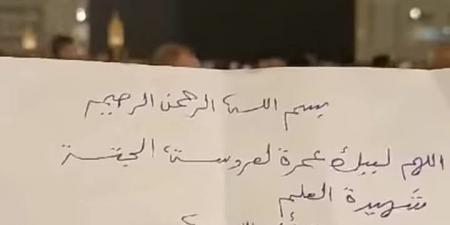 بسم الله الرحمن الرحيم
اللهم لبيك عمرة لعروسة الجنة
شهيرة العلم